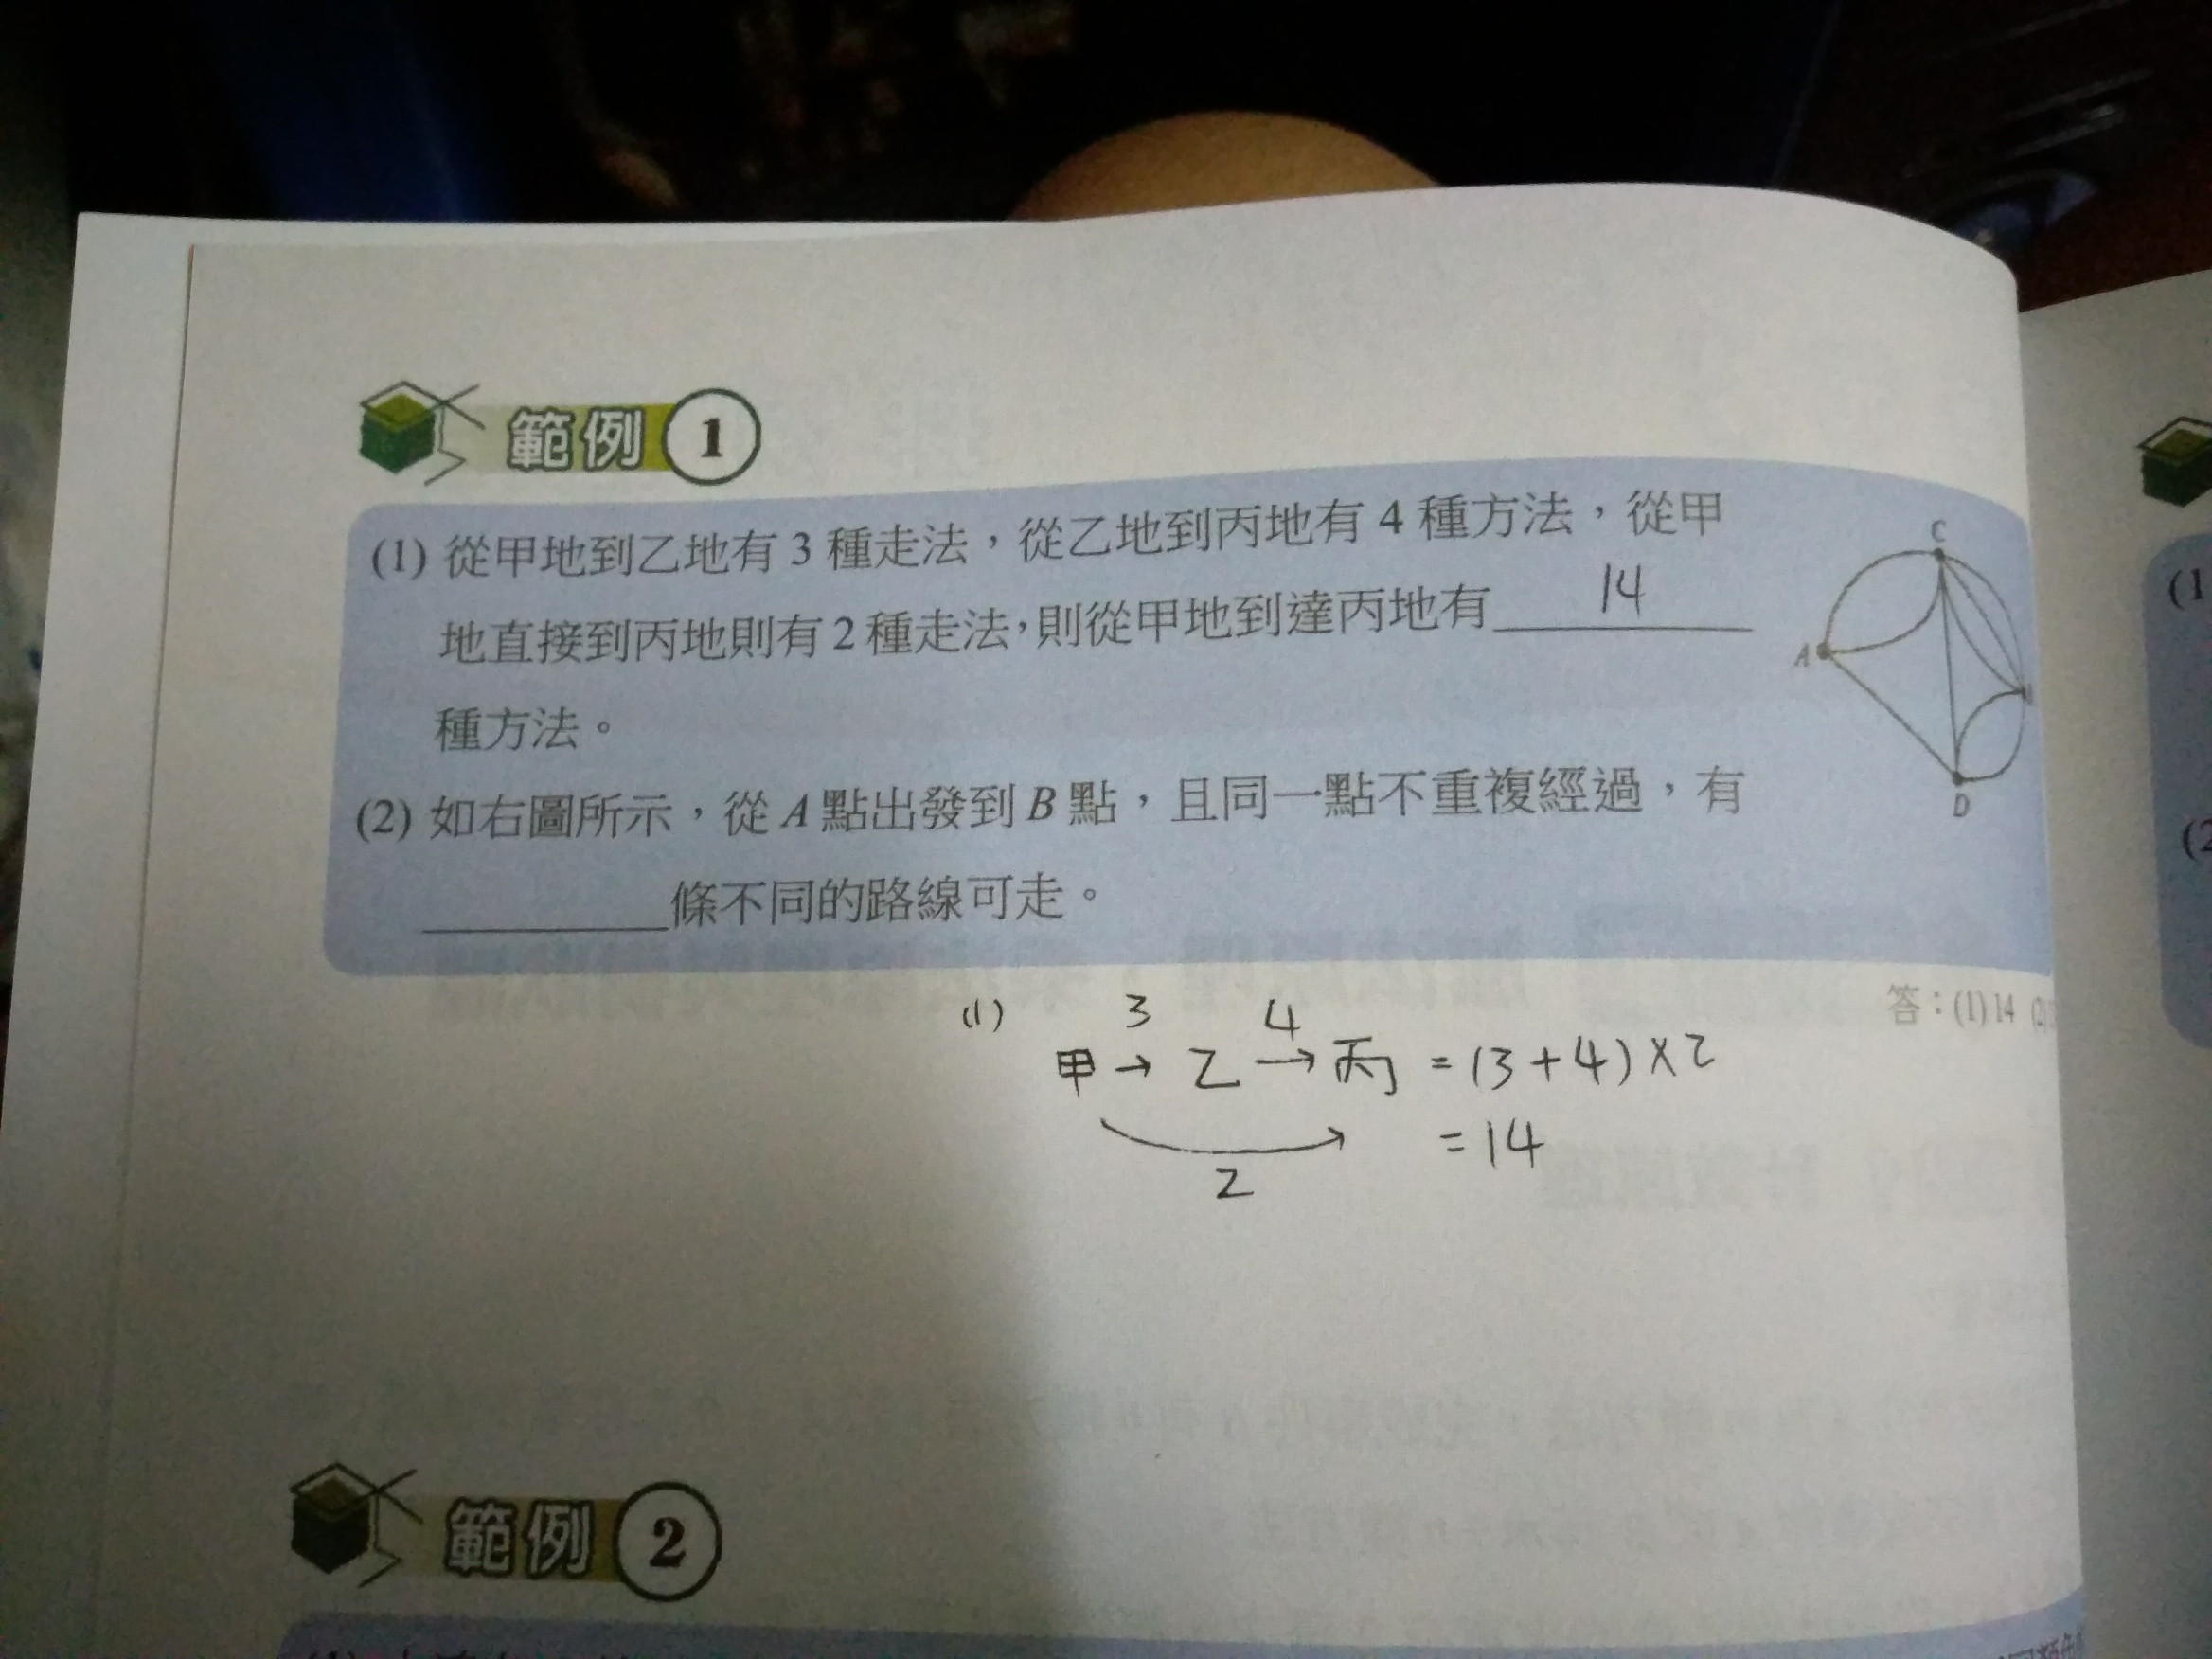 範例 1
(1) 從甲地到乙地有 3 種走法，從乙地到丙地有 4 種方法，從甲
地直接到丙地則有 2 種走法，則從甲地到達丙地有 14
種方法。
(2) 如右圖所示，從 A 點出發到 B 點，且同一點不重複經過，有
________條不同的路線可走。
C
A
D
答：(1) 14 (2)
(1) 3 4
甲 → 乙 → 丙 = (3+4) × 2
= 14
2
範例 2
(1
(2